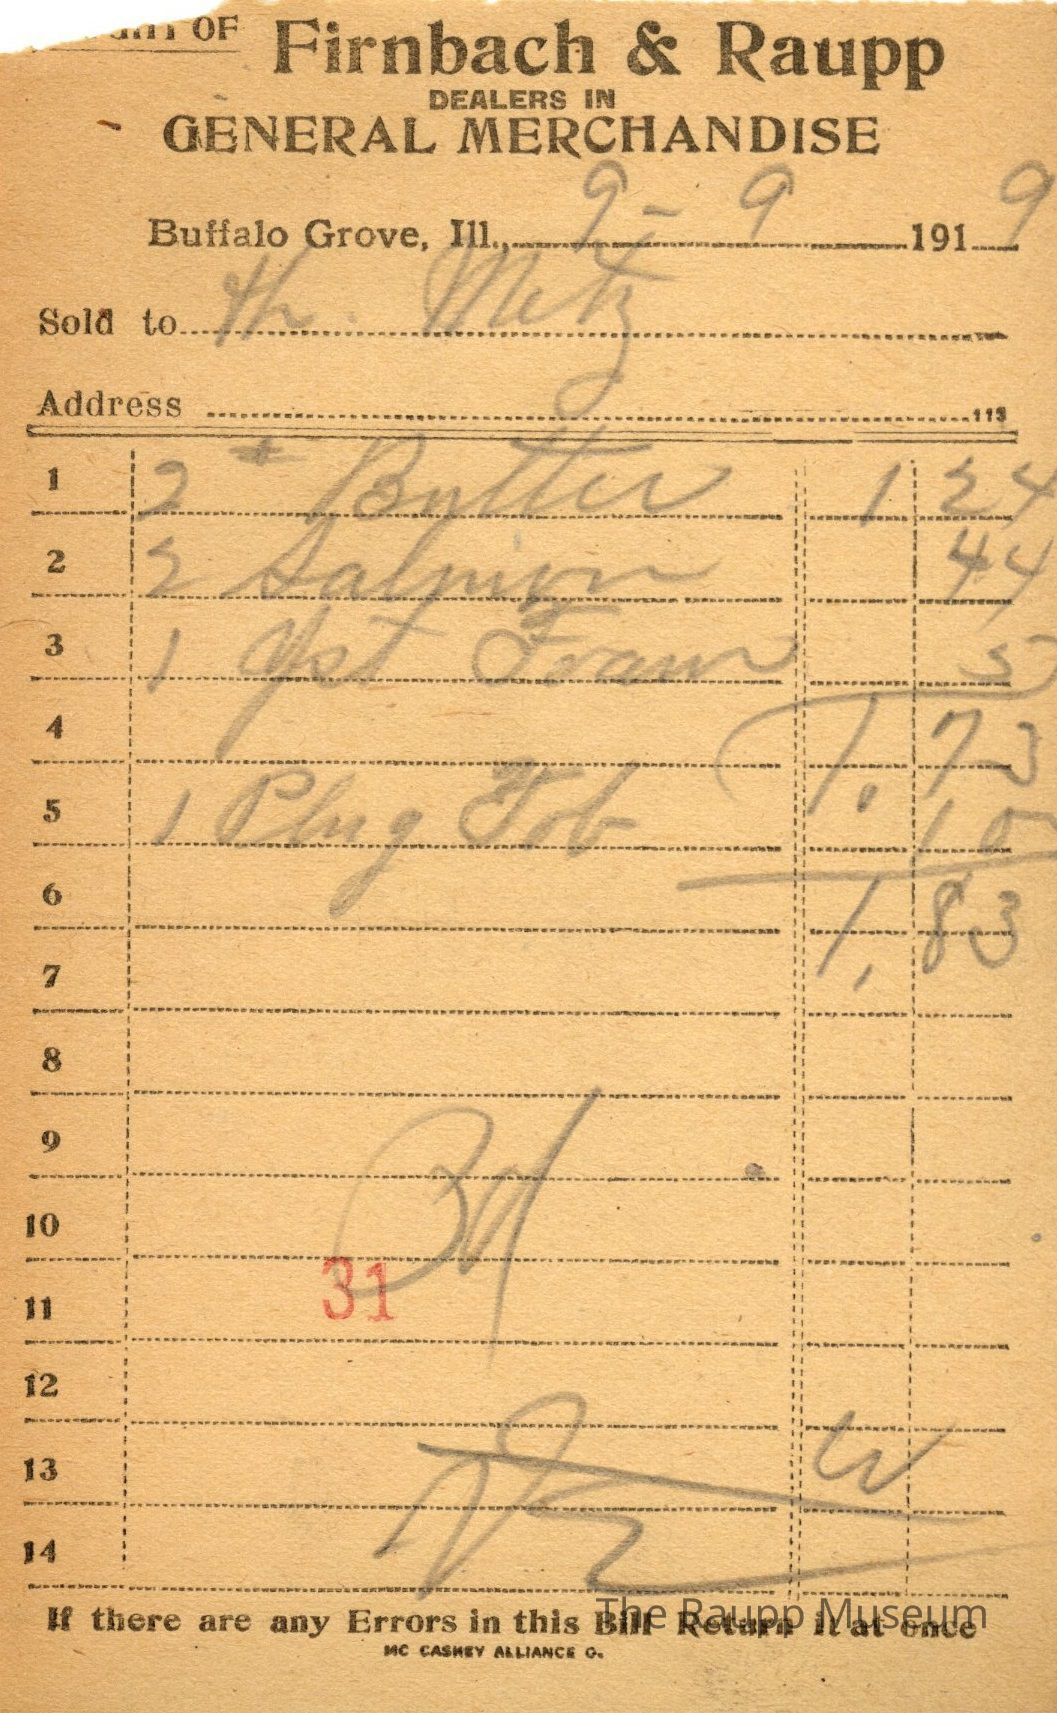 OF
Firnbach & Raupp
DEALERS IN
GENERAL MERCHANDISE
Buffalo Grove, Ill., 9 - 9 1919
Sold to Th. Metz
Address
113
1 2 # Butter 1 24
2 2 Salmon 44
3 1 Yst Foam 5
4 1.73
5 1 Plug Tob 10
6 1.83
7
8
9
10
31
11
12
13
14
If there are any Errors in this Bill Return it at once
The Raupp Museum
MC CASKEY ALLIANCE O.